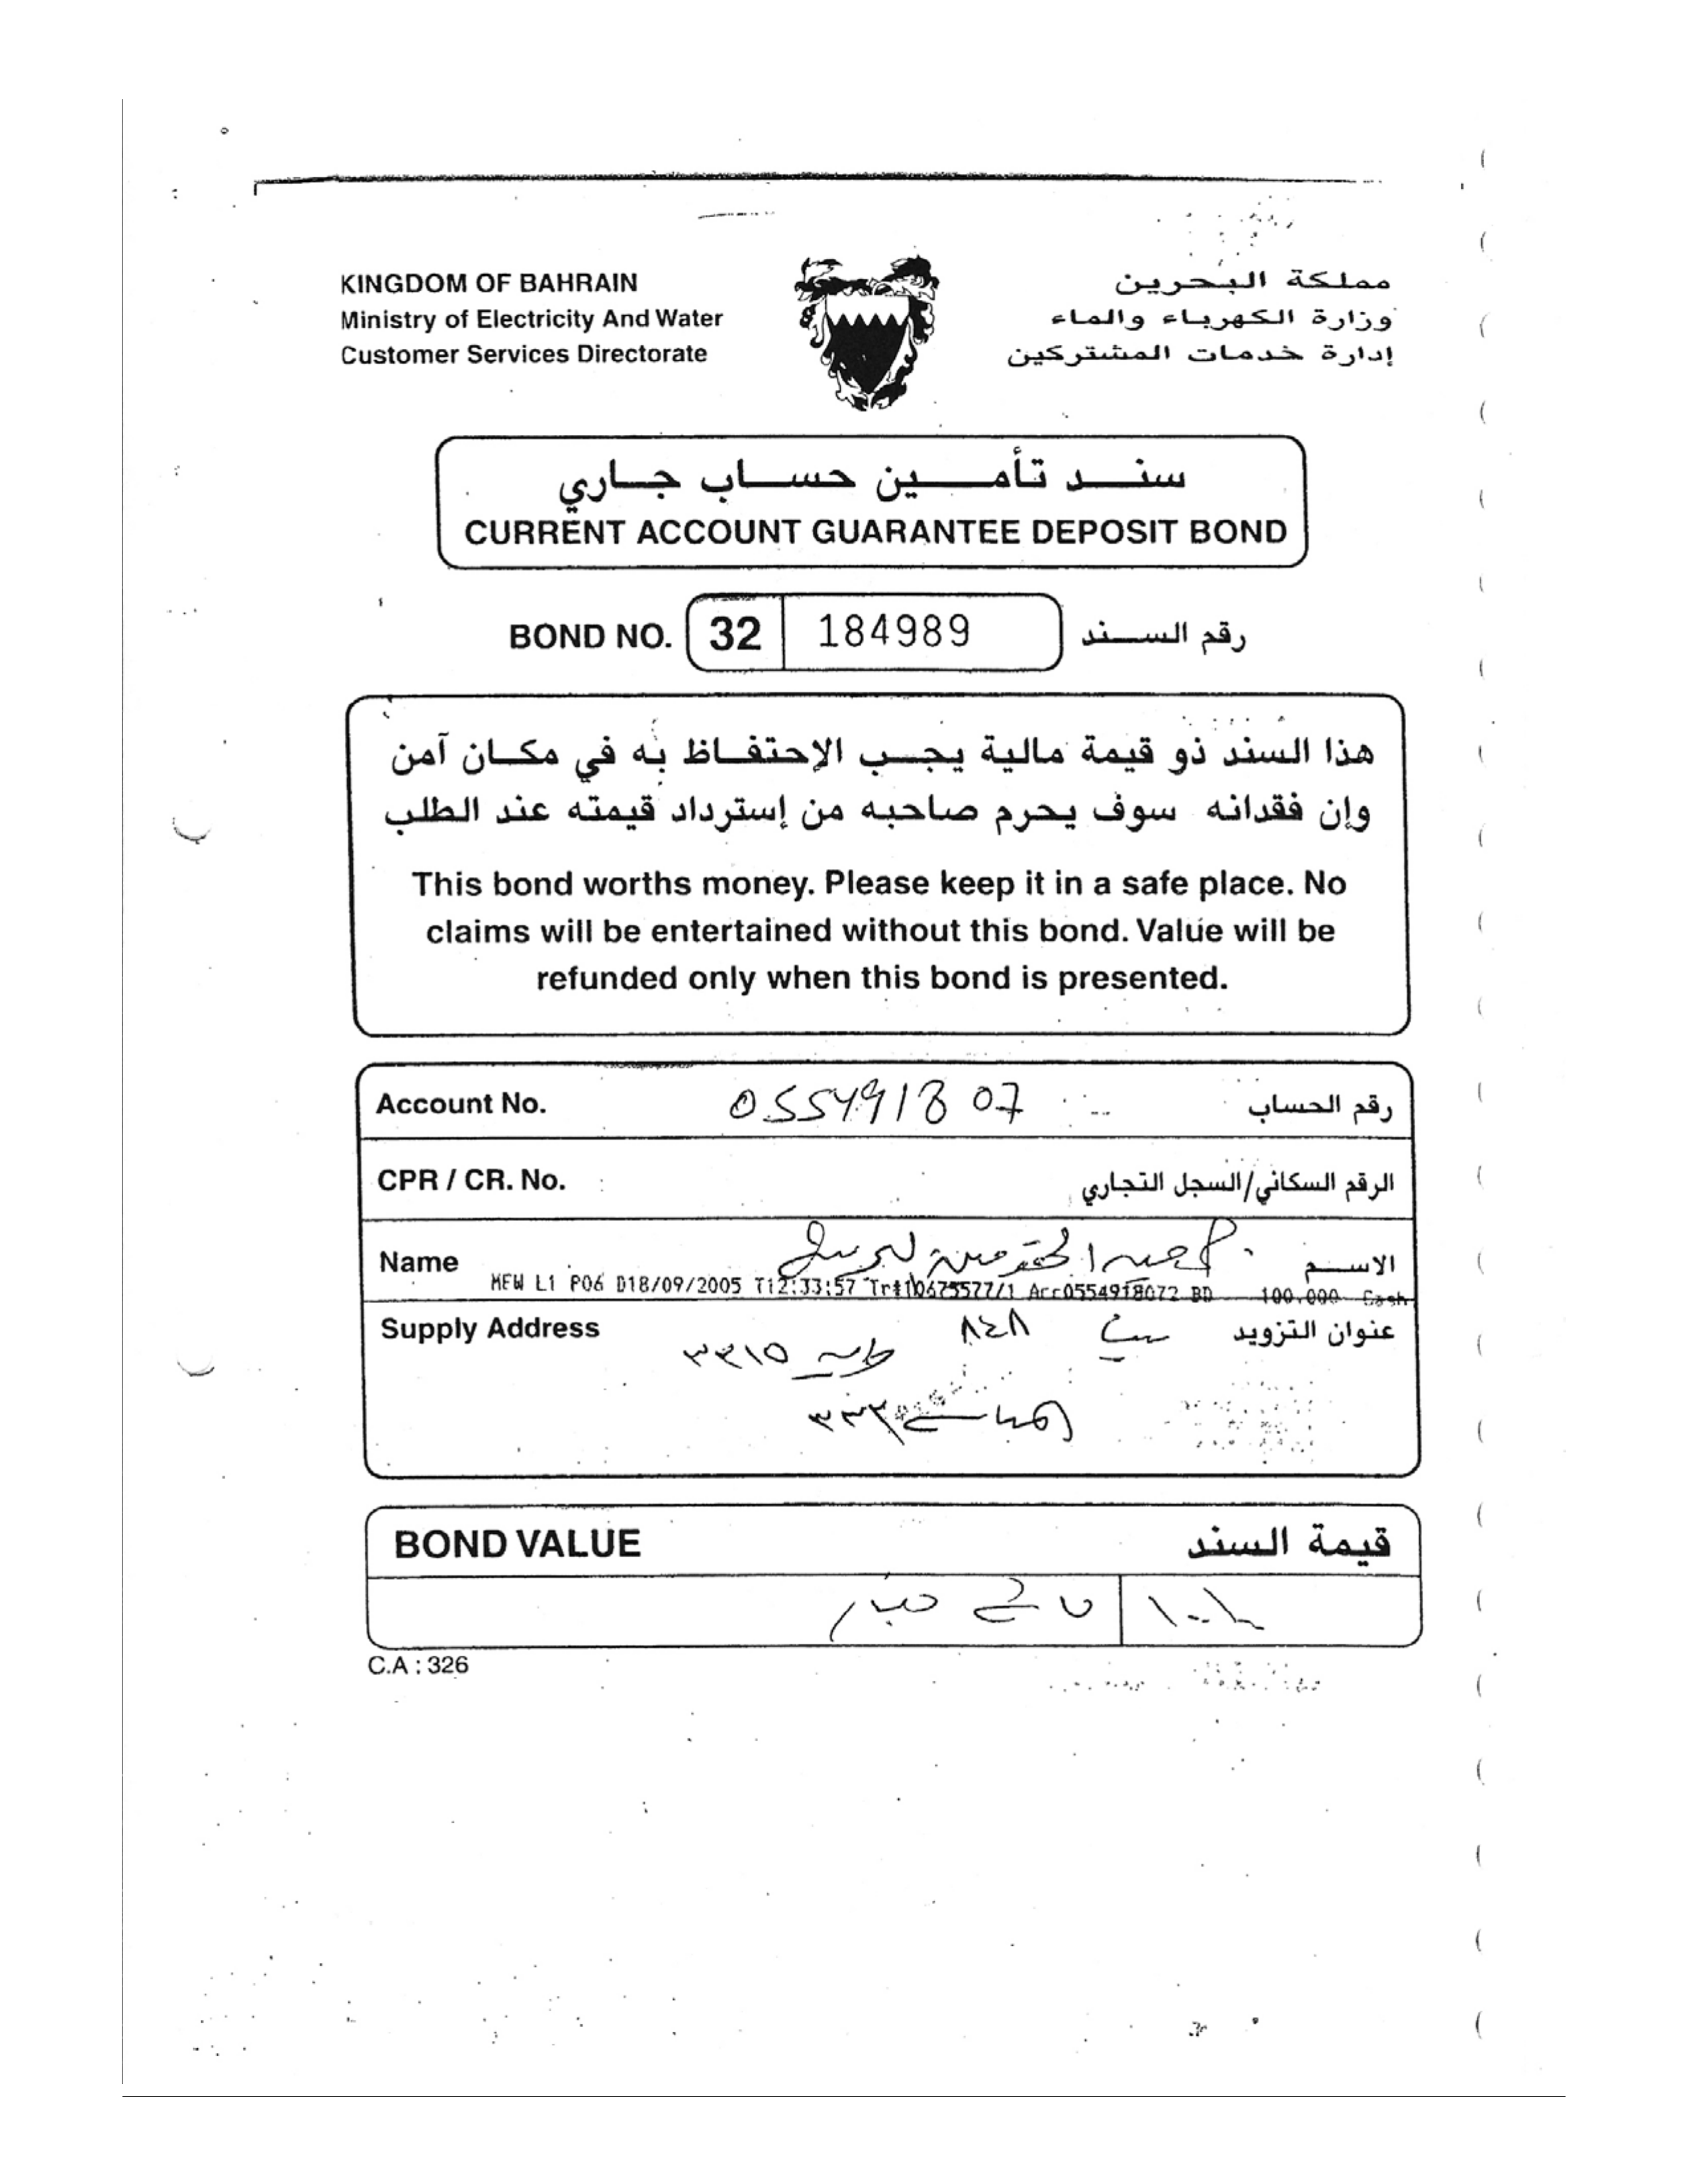 KINGDOM OF BAHRAIN
Ministry of Electricity And Water
Customer Services Directorate
مملكة البحرين
وزارة الكهرباء والماء
إدارة خدمات المشتركين
سند تأمين حساب جاري
CURRENT ACCOUNT GUARANTEE DEPOSIT BOND
BOND NO. 32 184989 رقم السند
هذا السند ذو قيمة مالية يجب الإحتفاظ به في مكان آمن
وإن فقدانه سوف يحرم صاحبه من إسترداد قيمته عند الطلب
This bond worths money. Please keep it in a safe place. No
claims will be entertained without this bond. Value will be
refunded only when this bond is presented.
Account No. 055491807 رقم الحساب
CPR / CR. No. الرقم السكاني/السجل التجاري
Name الاسم
MEW L1 P06 D18/09/2005 T12:33:57 BD 100.000 Cash
Supply Address ٨٤٨ عنوان التزويد
٣٣١٥
٣٣٣
BOND VALUE قيمة السند
دينار
C.A : 326